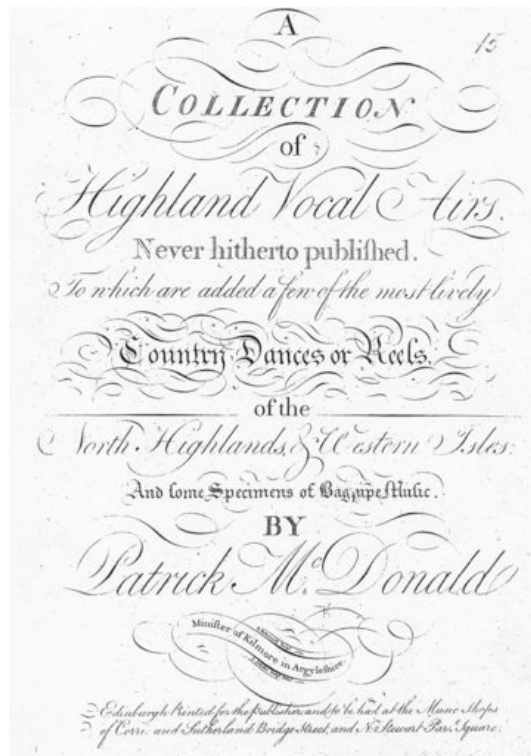 A
15
COLLECTION
of
Highland Vocal Airs.
Never hitherto publiſhed.
To which are added a few of the most lively
Country Dances or Reels.
of the
North Highlands, & Western Isles:
And ſome Specimens of Bagpipe Muſic.
BY
Patrick Mc. Donald
Miniſter of Kilmore in Argyleſhire
Edinburgh Printed for the publisher, and to be had at the Music Shops
of Corri and Sutherland Bridge Street, and N. Stewart Par. Square.